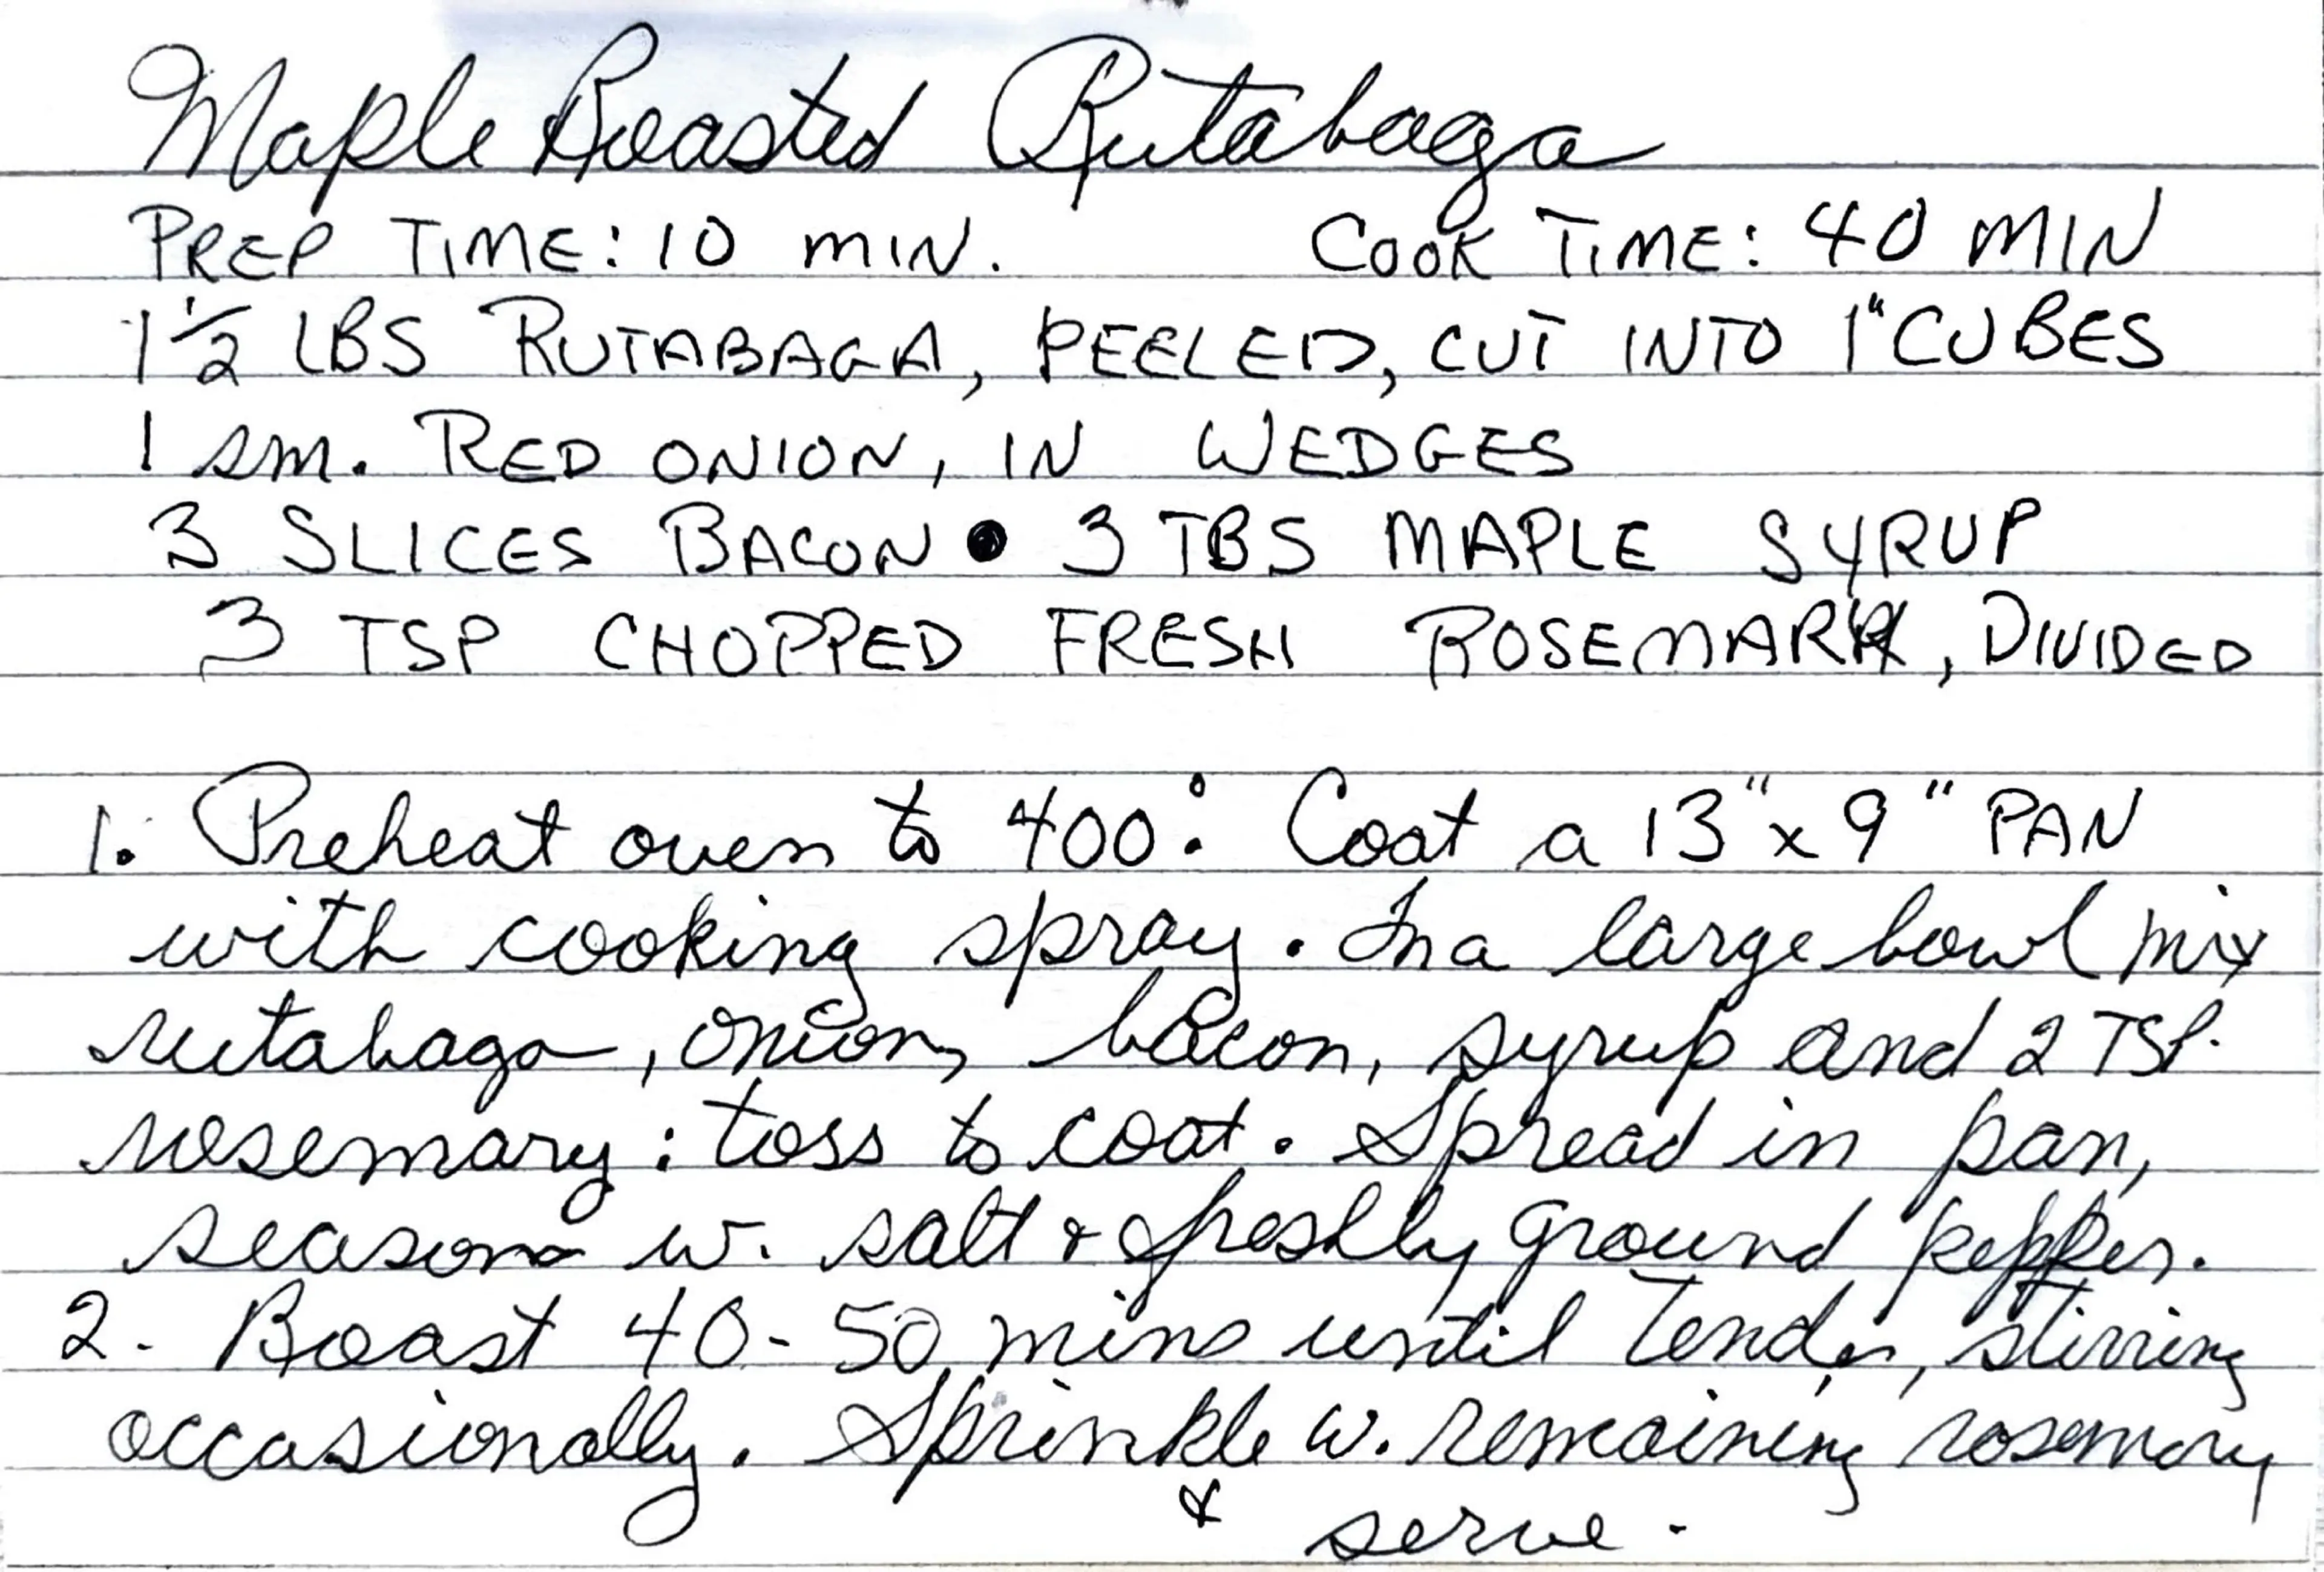 Maple Roasted Rutabaga
PREP TIME: 10 MIN. COOK TIME: 40 MIN
1 1/2 LBS RUTABAGA, PEELED, CUT INTO 1" CUBES
1 sm. RED ONION, IN WEDGES
3 SLICES BACON • 3 TBS MAPLE SYRUP
3 TSP CHOPPED FRESH ROSEMARY, DIVIDED
1. Preheat oven to 400°. Coat a 13" x 9" PAN
with cooking spray. In a large bowl mix
rutabaga, onion, bacon, syrup and 2 TSP.
rosemary; toss to coat. Spread in pan,
season w. salt & freshly ground pepper.
2. Roast 40-50 mins until Tender, stirring
occasionally. Sprinkle w. remaining rosemary
& serve.